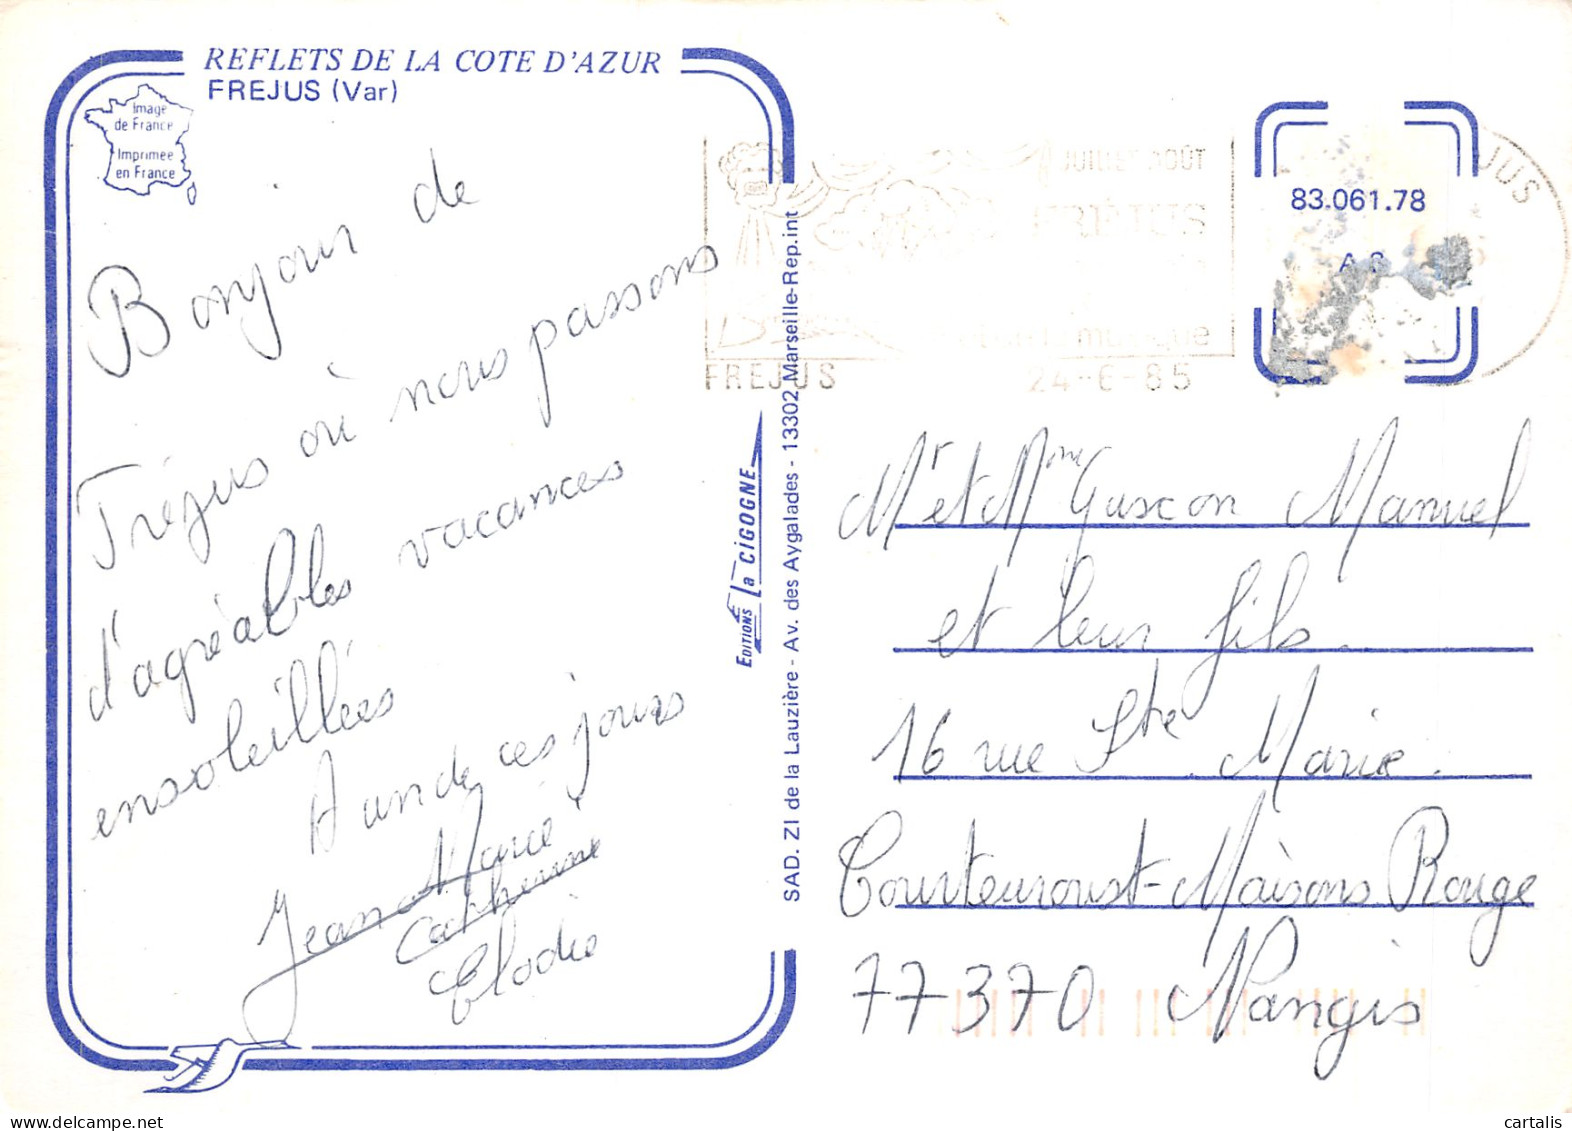 REFLETS DE LA COTE D'AZUR
FREJUS (Var)
Image
de France
Imprimée
en France
Bonjour de
Fréjus où nous passons
d'agréables vacances
ensoleillées
A un de ces jours
Jean Marie
Catherine
Elodie
EDITIONS La CIGOGNE
SAD. ZI de la Lauzière - Av. des Aygalades - 13302 Marseille-Rep.int
JUILLET AOÛT
FRÉJUS
musique
FREJUS 24-6-85
JUS
83.061.78
Mr et Mme Guscon Manuel
et leur fils.
16 rue Ste Marie.
Courteuroust-Maisons Rouge
77370 Nangis
cartalis